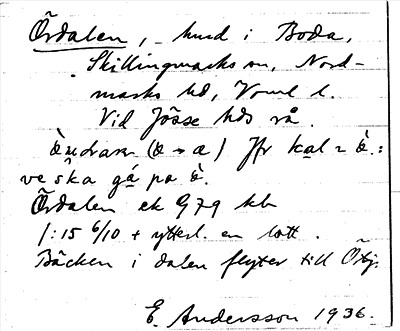 Ördalen, hmd i Boda,
Skillingmarks sn, Nord-
marks hd, Vrml l.
Vid Jösse hds rå.
(ò → a) Jfr kal =
ve ska gå på
Ördalen ek G79 kb
1:15 6/10 + ytterl. en lott.
Bäcken i dalen flyter till
E. Andersson 1936.